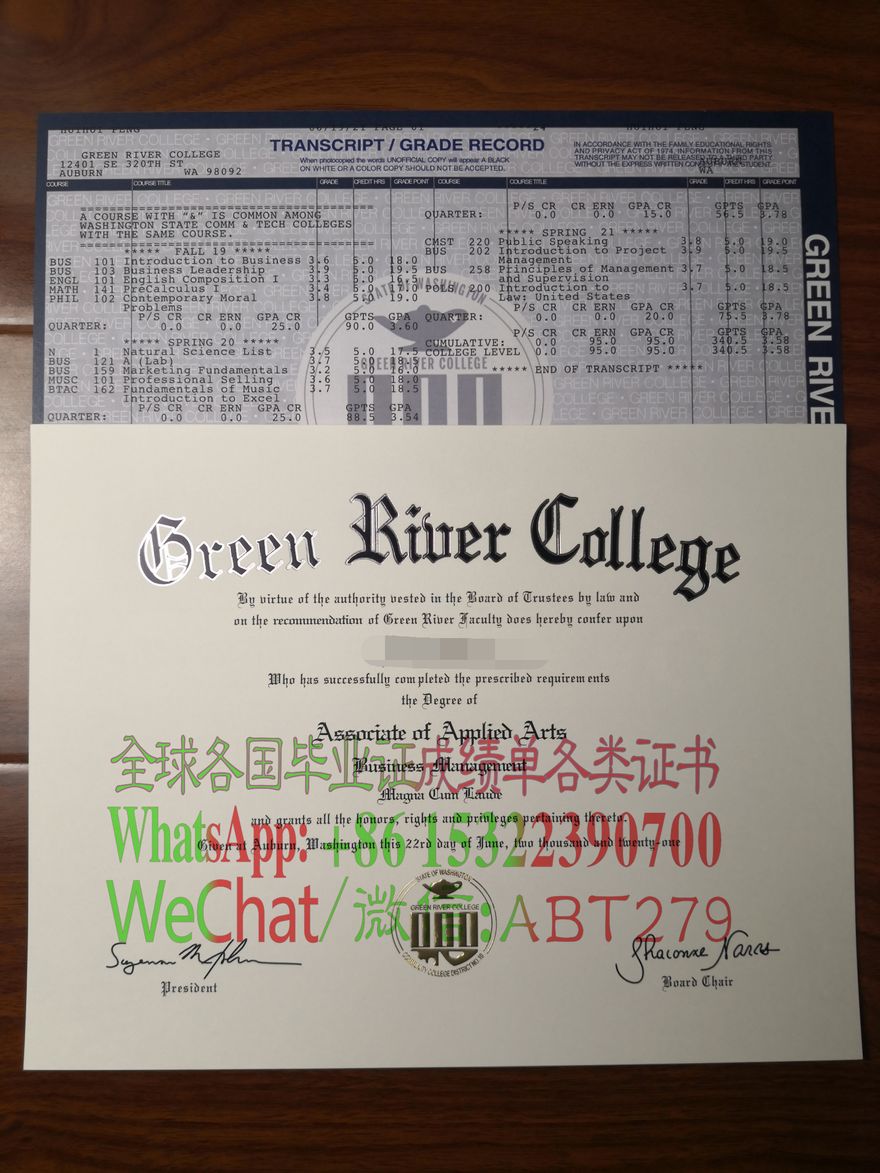 GREEN RIVER COLLEGE
12401 SE 320TH ST
AUBURN WA 98092
TRANSCRIPT / GRADE RECORD
When photocopied the words UNOFFICIAL COPY will appear a BLACK
ON WHITE OR A COLOR COPY SHOULD NOT BE ACCEPTED.
IN ACCORDANCE WITH THE FAMILY EDUCATIONAL RIGHTS
AND PRIVACY ACT OF 1974 INFORMATION FROM THIS
TRANSCRIPT MAY NOT BE RELEASED TO A THIRD PARTY
WITHOUT THE EXPRESS WRITTEN CONSENT OF THE STUDENT.
AUBURN
WA
COURSE COURSE TITLE GRADE CREDIT HRS GRADE POINT
A COURSE WITH "&" IS COMMON AMONG
WASHINGTON STATE COMM & TECH COLLEGES
WITH THE SAME COURSE.
***** FALL 19 *****
BUS 101 Introduction to Business 3.6 5.0 18.0
BUS 103 Business Leadership 3.9 5.0 19.5
ENGL 101 English Composition I 3.3 5.0 16.5
MATH 141 PreCalculus I 3.4 5.0 17.0
PHIL 102 Contemporary Moral 3.8 5.0 19.0
Problems
P/S CR CR ERN GPA CR GPTS GPA
QUARTER: 0.0 0.0 25.0 90.0 3.60
***** SPRING 20 *****
N 1 Natural Science List 3.5 5.0 17.5
BUS 121 A (Lab) 3.7 5.0 18.5
BUS 159 Marketing Fundamentals 3.2 5.0 16.0
MUSC 101 Professional Selling 3.6 5.0 18.0
BTAC 162 Fundamentals of Music 3.7 5.0 18.5
Introduction to Excel
P/S CR CR ERN GPA CR GPTS GPA
QUARTER: 0.0 0.0 25.0 88.5 3.54
COURSE COURSE TITLE GRADE CREDIT HRS GRADE POINT
P/S CR CR ERN GPA CR GPTS GPA
QUARTER: 0.0 0.0 15.0 56.5 3.78
***** SPRING 21 *****
CMST 220 Public Speaking 3.8 5.0 19.0
BUS 202 Introduction to Project 3.9 5.0 19.5
Management
BUS 258 Principles of Management 3.7 5.0 18.5
and Supervision
POLS 200 Introduction to 3.7 5.0 18.5
Law: United States
P/S CR CR ERN GPA CR GPTS GPA
QUARTER: 0.0 0.0 20.0 75.5 3.78
P/S CR CR ERN GPA CR GPTS GPA
CUMULATIVE: 0.0 95.0 95.0 340.5 3.58
COLLEGE LEVEL 0.0 95.0 95.0 340.5 3.58
***** END OF TRANSCRIPT *****
STATE OF WASHINGTON
GREEN RIVER COLLEGE
GREEN RIVE
Green River College
By virtue of the authority vested in the Board of Trustees by law and
on the recommendation of Green River Faculty does hereby confer upon
Who has successfully completed the prescribed requirements
the Degree of
Associate of Applied Arts
全球各国毕业证成绩单各类证书
Business Management
Magna Cum Laude
and grants all the honors, rights and privileges pertaining thereto.
WhatsApp: +86 15322390700
Given at Auburn, Washington this 22rd day of June, two thousand and twenty-one
WeChat/微信:ABT279
STATE OF WASHINGTON
GREEN RIVER COLLEGE
COMMUNITY COLLEGE DISTRICT NO. 10
President
Board Chair